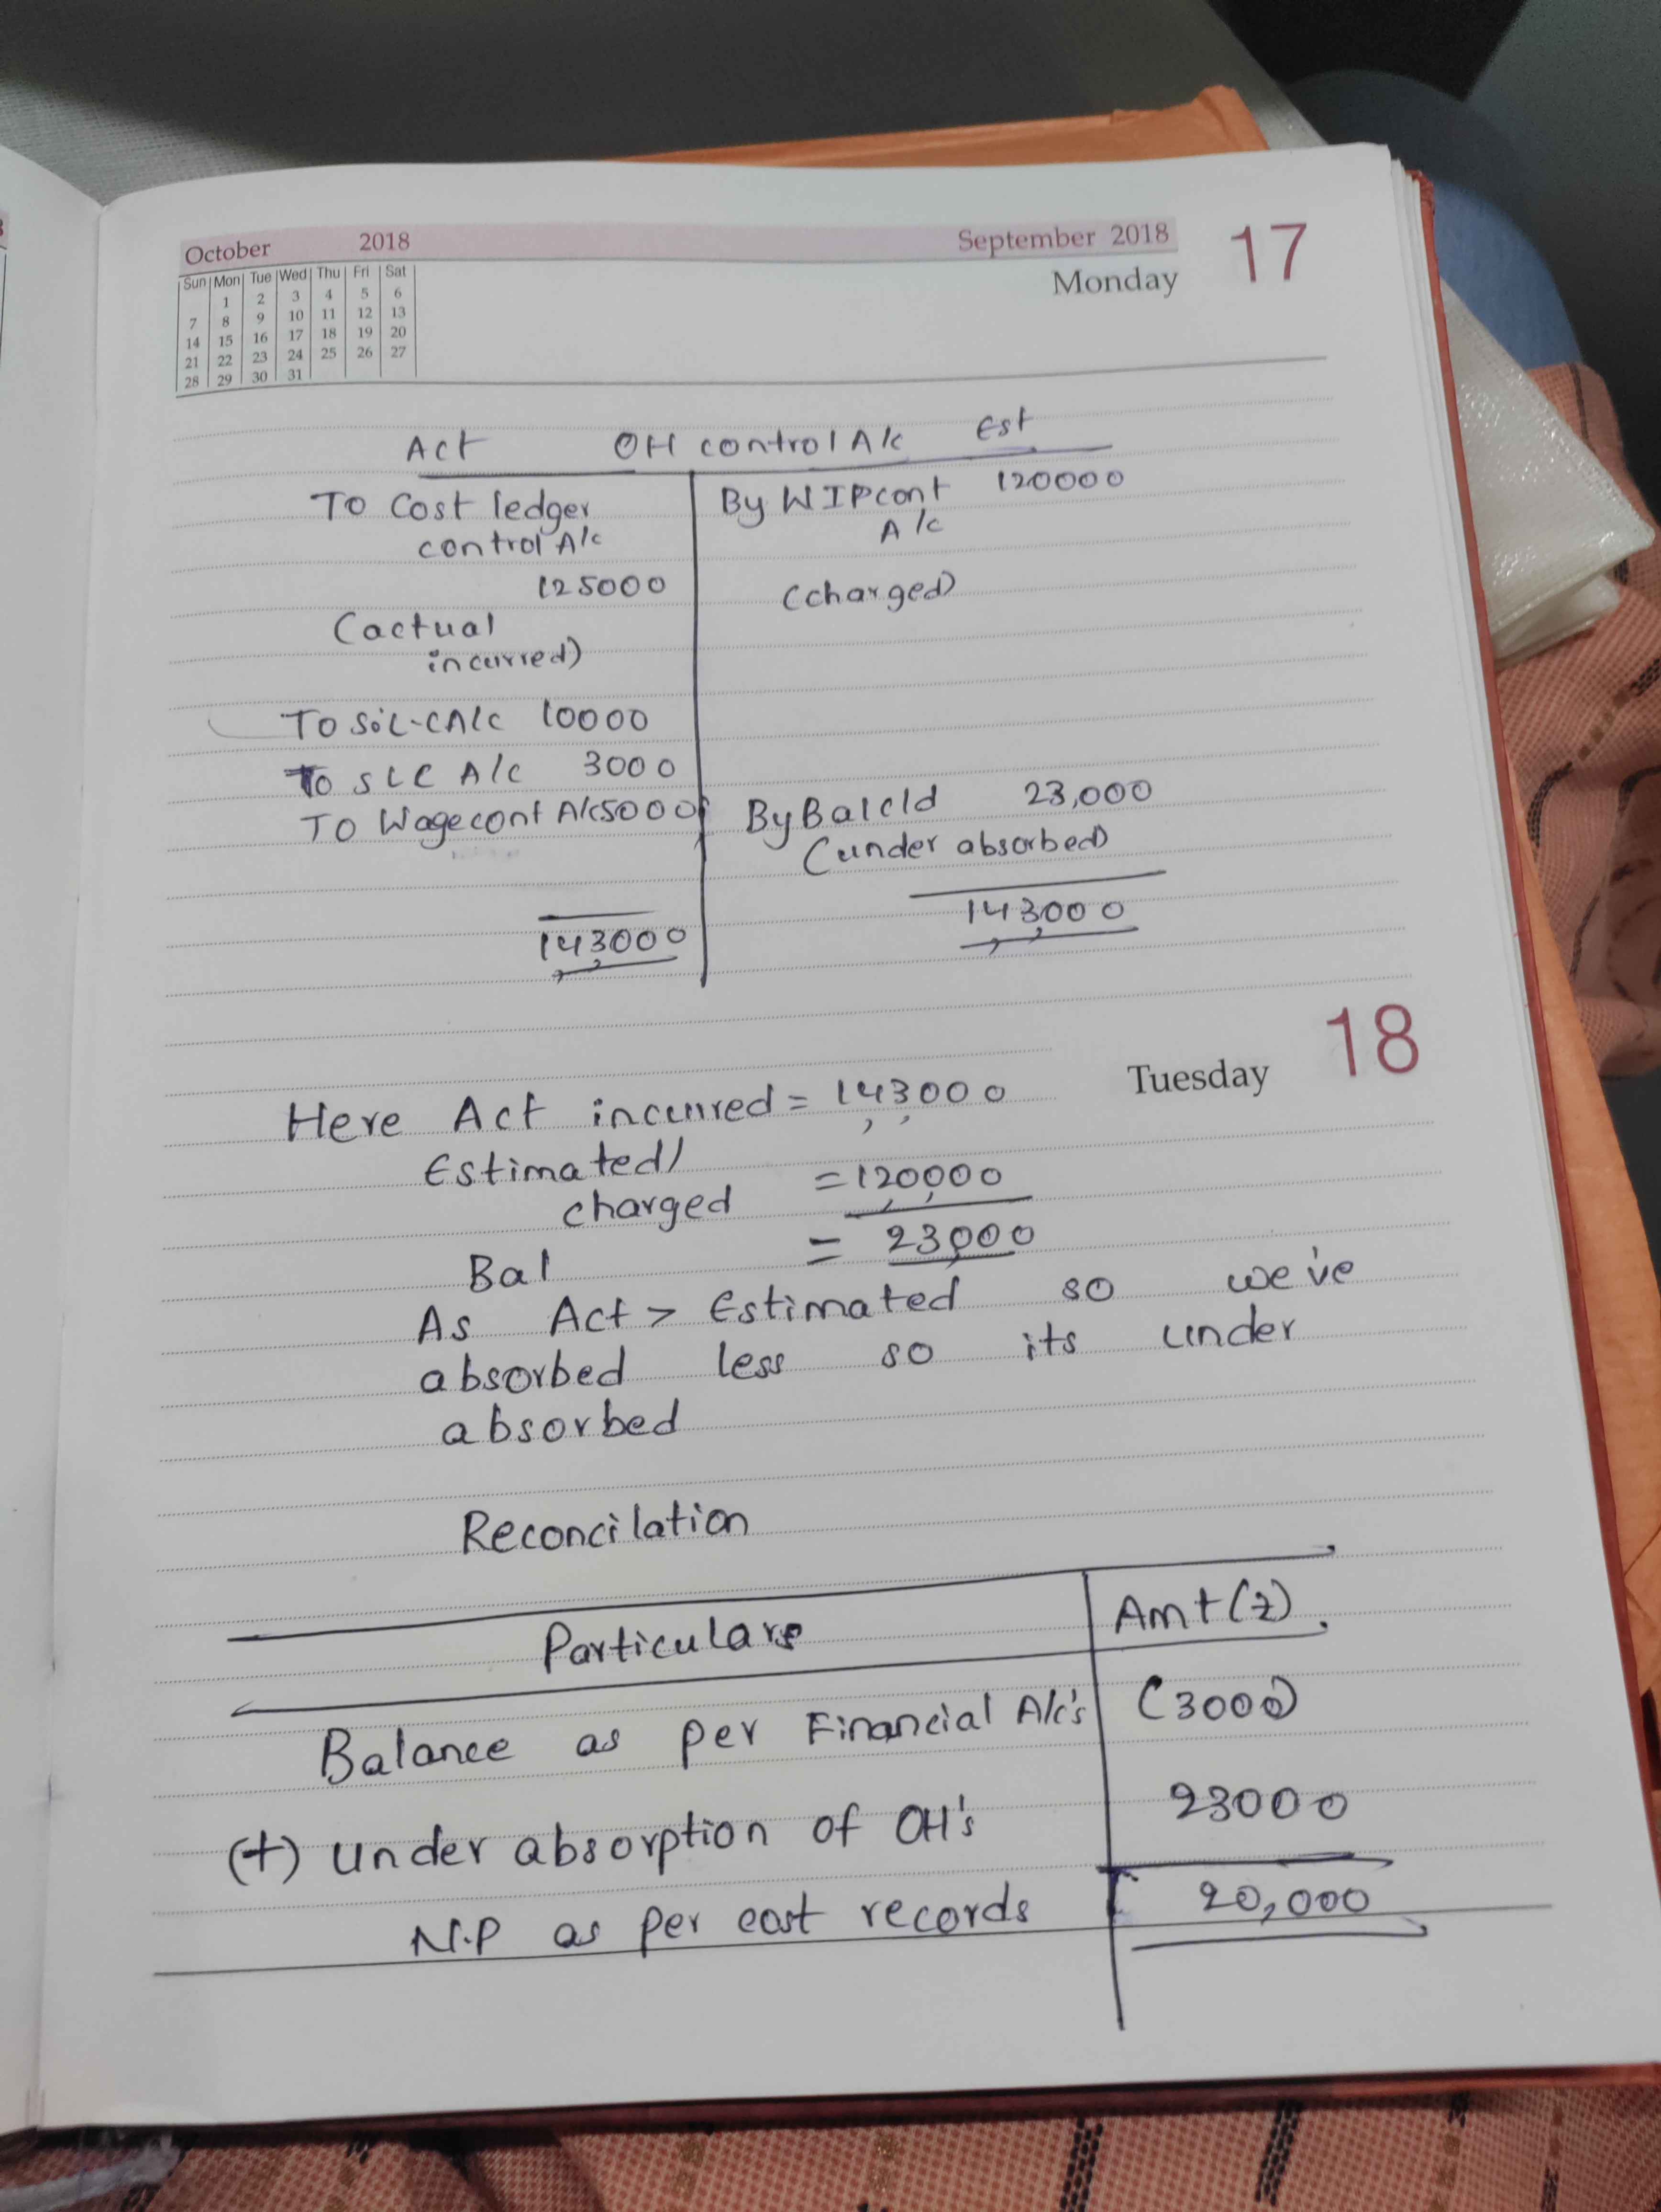 October 2018
September 2018 17
Monday
Sun Mon Tue Wed Thu Fri Sat
1 2 3 4 5 6
7 8 9 10 11 12 13
14 15 16 17 18 19 20
21 22 23 24 25 26 27
28 29 30 31
Act OH control A/c Est
To Cost ledger
control A/c
125000
(actual
incurred)
To SLC A/c 10000
To SLC A/c 3000
To Wage cont A/c 5000
143000
By WIP cont 120000
A/c
(charged)
By Bal c/d 23,000
(under absorbed)
143000
18
Tuesday
Here Act incurred = 143000
Estimated/
charged = 120000
Bal = 23000
As Act > Estimated so we've
absorbed less so its under
absorbed
Reconcilation
Particulars Amt (₹)
Balance as per Financial A/c's (3000)
(+) under absorption of OH's 23000
N.P as per cost records 20,000